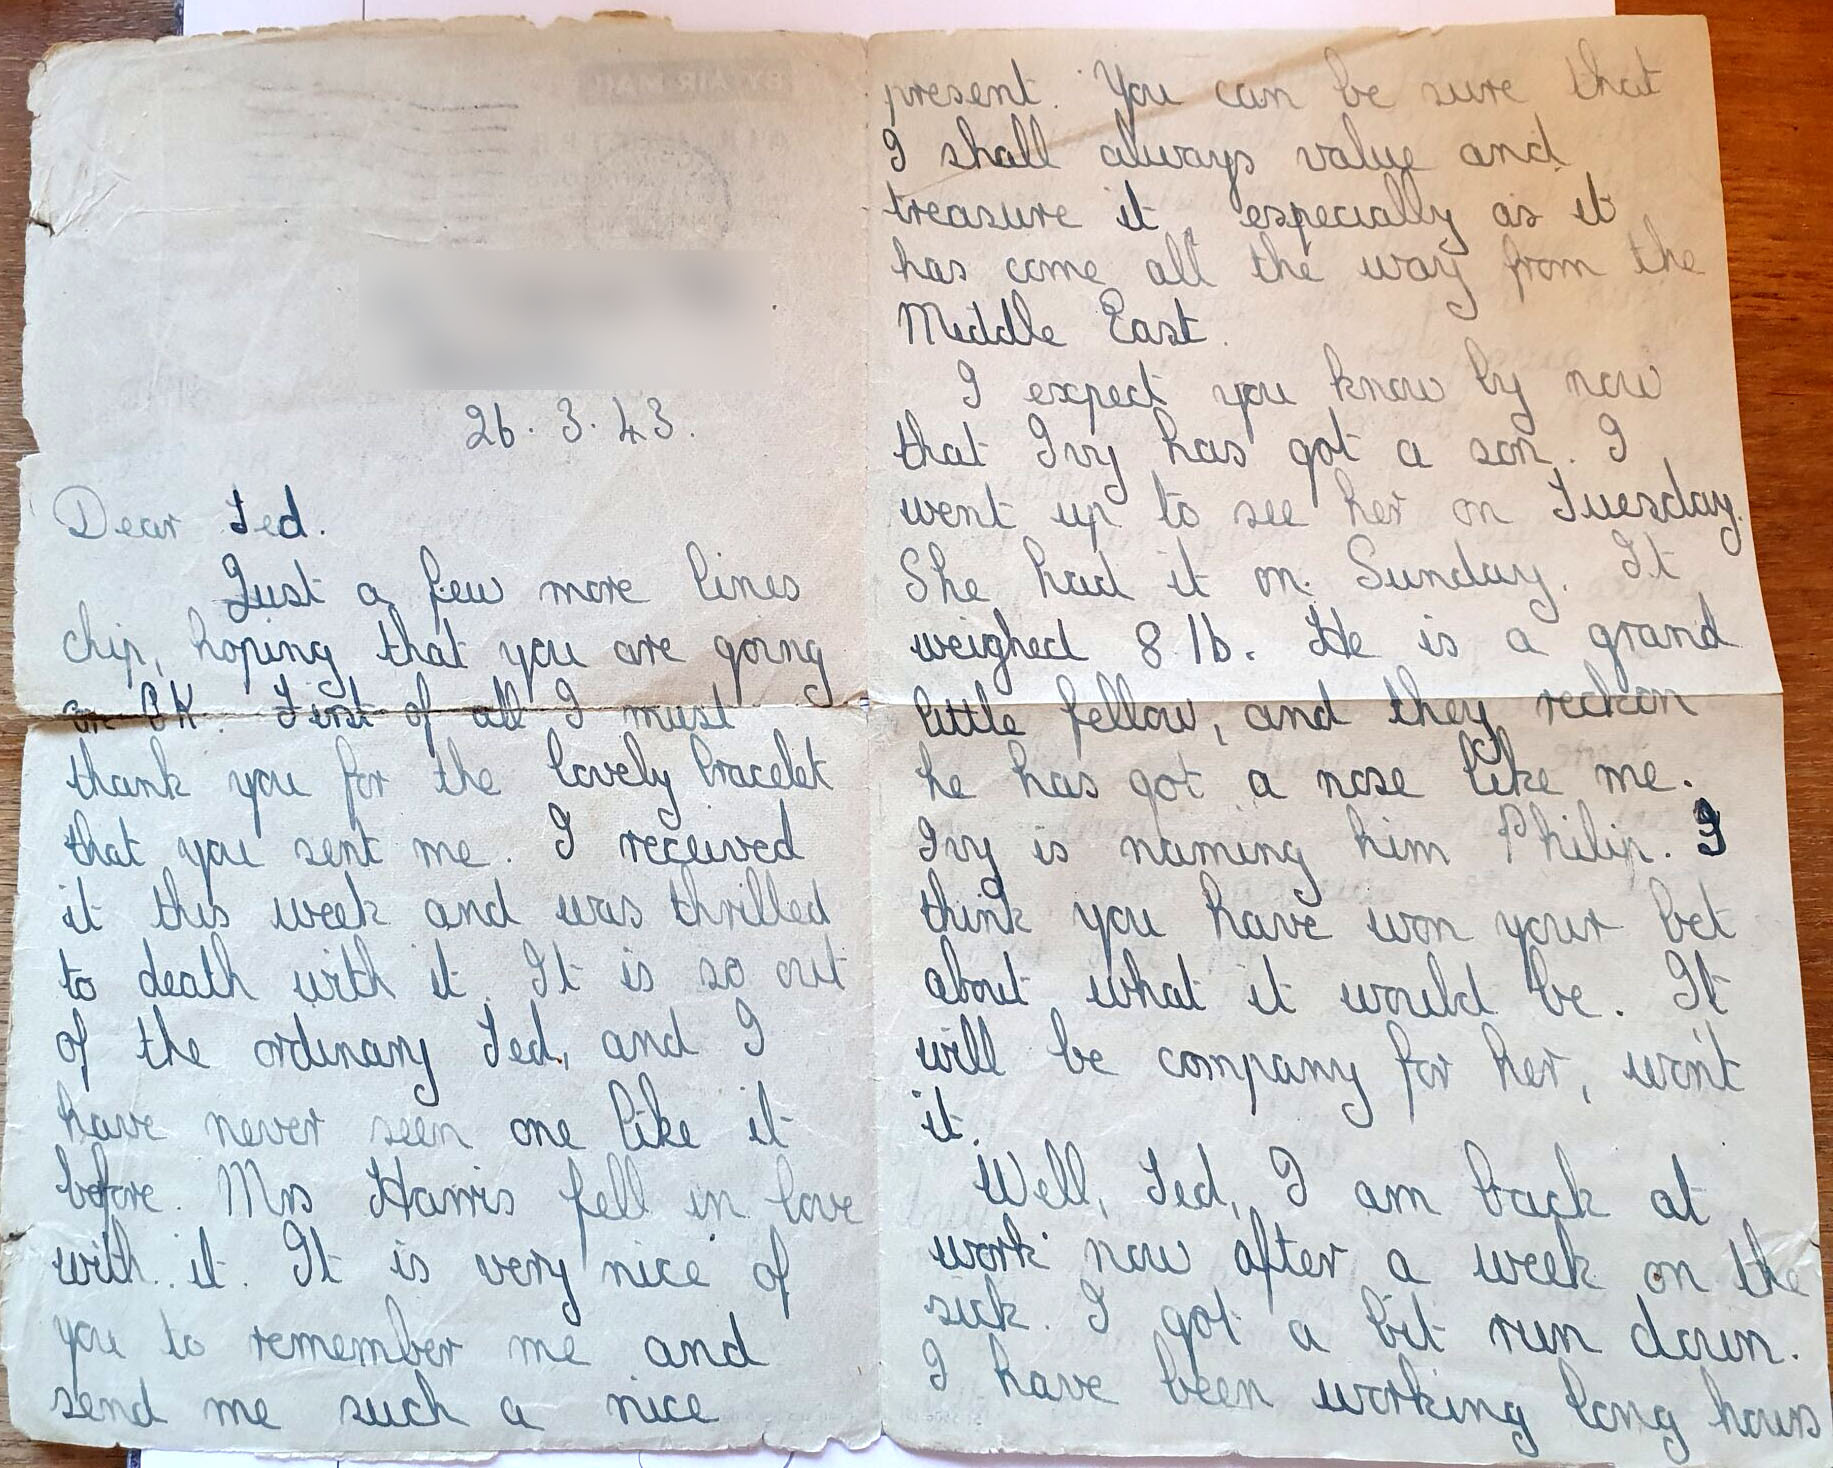 BY AIR MAIL
26. 3. 43.
Dear Ted.
Just a few more lines
chip, hoping that you are going
on OK. First of all I must
thank you for the lovely bracelet
that you sent me. I received
it this week and was thrilled
to death with it. It is so out
of the ordinary Ted, and I
have never seen one like it
before. Mrs Harris fell in love
with it. It is very nice of
you to remember me and
send me such a nice
present. You can be sure that
I shall always value and
treasure it, especially as it
has come all the way from the
Middle East.
I expect you know by now
that Ivy has got a son. I
went up to see her on Tuesday.
She had it on Sunday. It
weighed 8 lb. He is a grand
little fellow, and they reckon
he has got a nose like me.
Ivy is naming him Philip. I
think you have won your bet
about what it would be. It
will be company for her, won't
it.
Well, Ted, I am back at
work now after a week on the
sick. I got a bit run down.
I have been working long hours